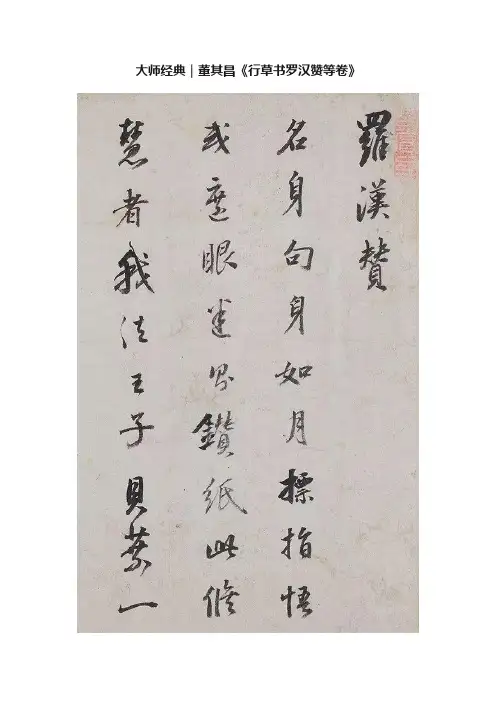 大师经典｜董其昌《行草书罗汉赞等卷》
羅漢贊
名身句身如月標指悟
或遮眼迷鑽紙此修
慧者我法王子貝葉一